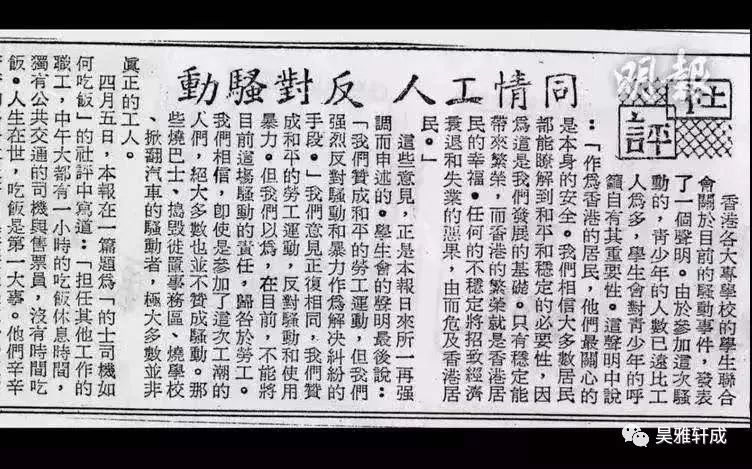 明報
社評
同情工人 反對騷動
香港各大專學校的學生聯合
會關於目前的騷動事件，發表
了一個聲明。由於參加這次騷
動的，靑少年的人數已遠比工
人爲多，學生會對靑少年的呼
籲自有其重要性。這聲明中說
：「作爲香港的居民，他們最關心的
是本身的安全。我們相信大多數居民
都能瞭解到和平和穩定的必要性，因
爲這是我們發展的基礎。只有穩定能
帶來繁榮，而香港的繁榮就是香港居
民的幸福。任何的不穩定將招致經濟
衰退和失業的惡果，由而危及香港居
民。」
這些意見，正是本報日來所一再强
調而申述的。學生會的聲明最後說：
「我們贊成和平的勞工運動，但我們
强烈反對騷動和暴力作爲解決糾紛的
手段。」我們意見正復相同，我們贊
成和平的勞工運動，反對騷動和使用
暴力。但我們以爲，在目前，不能將
目前這場騷動的責任，歸咎於勞工。
我們相信，卽使是參加了這次工潮的
人們，絕大多數也並不贊成騷動。那
些燒巴士、搗毀徙置事務區、燒學校
、掀翻汽車的騷動者，極大多數並非
眞正的工人。
四月五日，本報在一篇題爲「的士司機如
何吃飯」的社評中寫道：「担任其他工作的
職工，中午大都有一小時的吃飯休息時間，
獨有公共交通的司機與售票員，沒有時間吃
飯。人生在世，吃飯是第一大事。他們辛辛
昊雅轩成